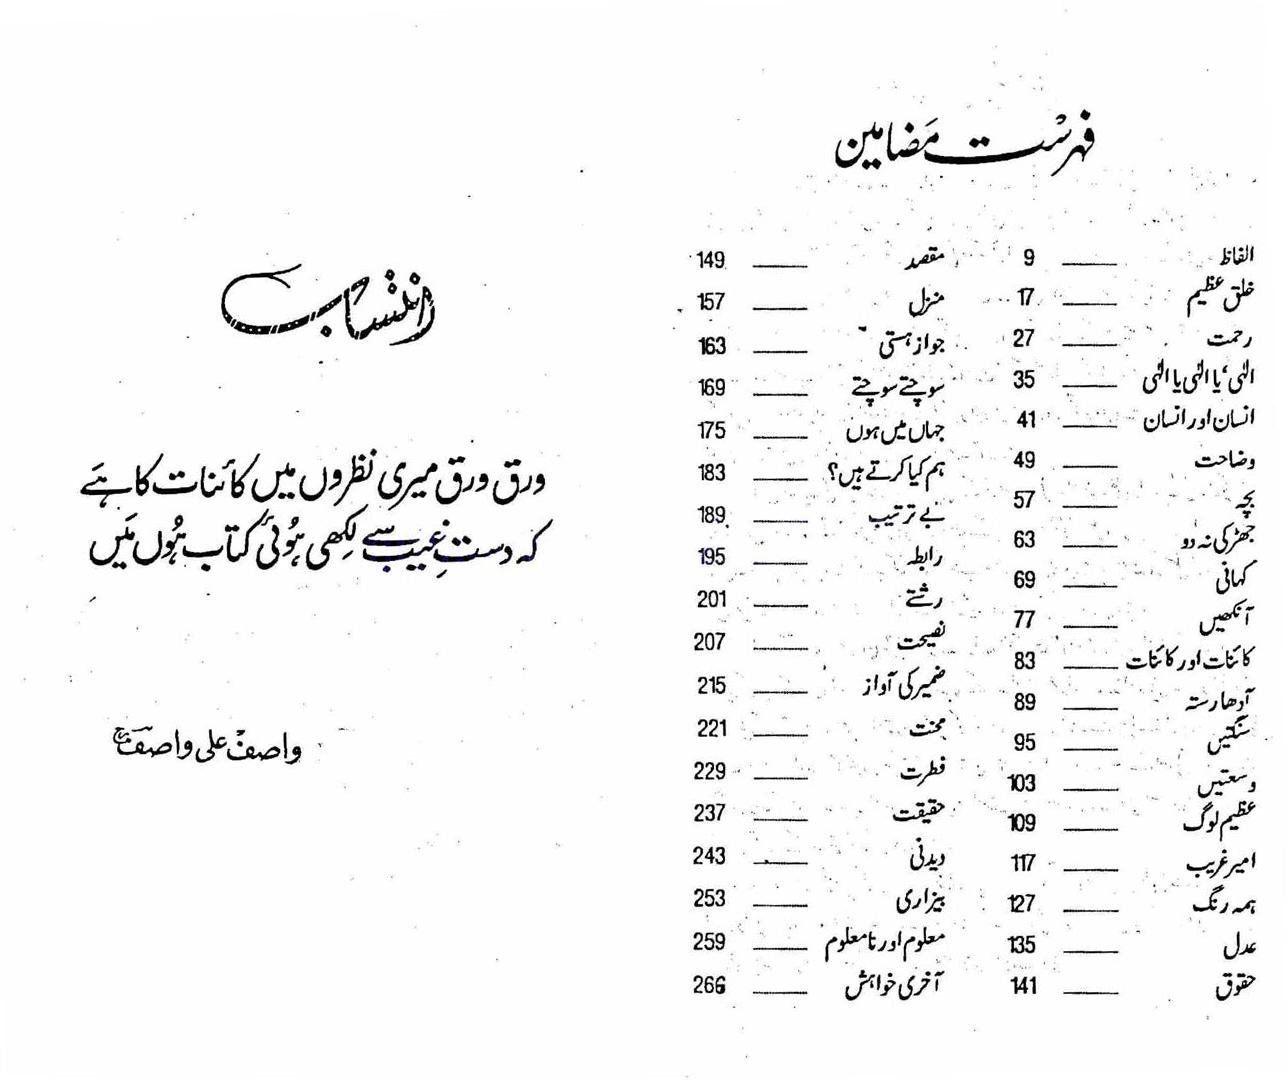 فہرست مضامین
الفاظ 9
خلق عظیم 17
رحمت 27
الٰہی، یا الٰہی یا الٰہی 35
انسان اور انسان 41
وضاحت 49
بچہ 57
جھڑکی نہ دو 63
کہانی 69
آنکھیں 77
کائنات اور کائنات 83
آدھا رستہ 89
سنگتیں 95
وسعتیں 103
عظیم لوگ 109
امیر غریب 117
ہمہ رنگ 127
عدل 135
حقوق 141
مقصد 149
منزل 157
جواز ہستی 163
سوچتے سوچتے 169
جہاں میں ہوں 175
ہم کیا کرتے ہیں؟ 183
بے ترتیب 189
رابطہ 195
رشتے 201
نصیحت 207
ضمیر کی آواز 215
محنت 221
فطرت 229
حقیقت 237
دیدنی 243
بیزاری 253
معلوم اور نامعلوم 259
آخری خواہش 266
انتساب
ورق ورق میری نظروں میں کائنات کا ہے
کہ دستِ غیب سے لکھی ہوئی کتاب ہوں میں
واصف علی واصفؒ